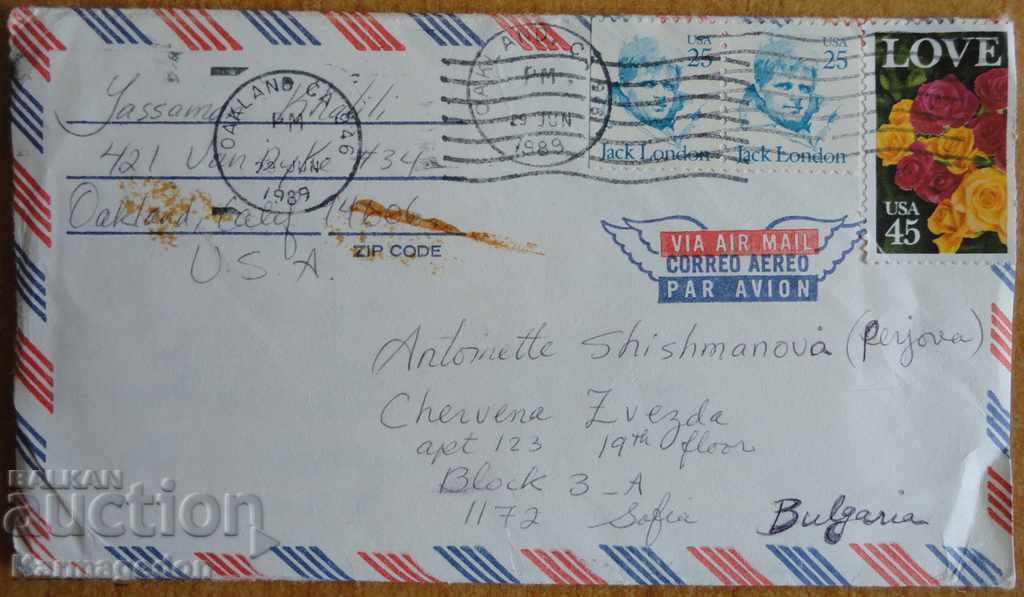 Oakland, Calif
ZIP CODE
U.S.A.
OAKLAND, CA 946
PM
JUN
1989
OAKLAND, CA
PM
29 JUN
1989
USA
25
Jack London
USA
25
Jack London
LOVE
USA
45
VIA AIR MAIL
CORREO AEREO
PAR AVION
Antoinette Shishmanova (Perjova)
Chervena Zvezda
apt 123 19th floor
Block 3-A
1172 Sofia Bulgaria
BALKAN
auction
Karmagedon